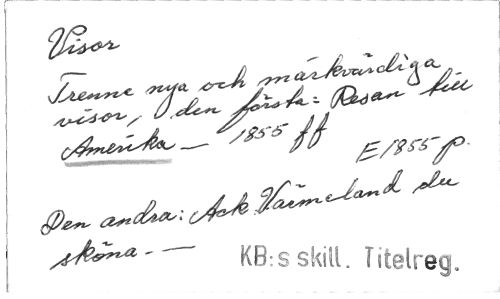 Visor
Trenne nya och märkvärdiga
visor, den första: Resan till
Amerika — 1855 ff
E 1855 p.
Den andra: Ack Värmeland du
sköna. —
KB:s skill. Titelreg.